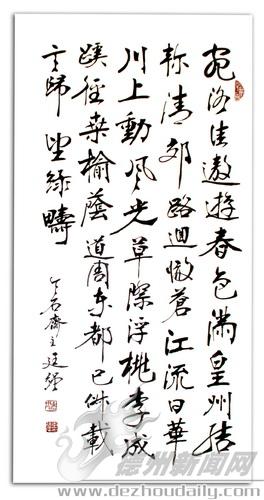 宛洛佳遨遊春色滿皇州結
軫清郊路迴瞰蒼江流日華
川上動風光草際浮桃李成
蹊徑桑榆蔭道周東都已俶載
言歸望綠疇
石齋主
德州新闻网
www.dezhoudaily.com